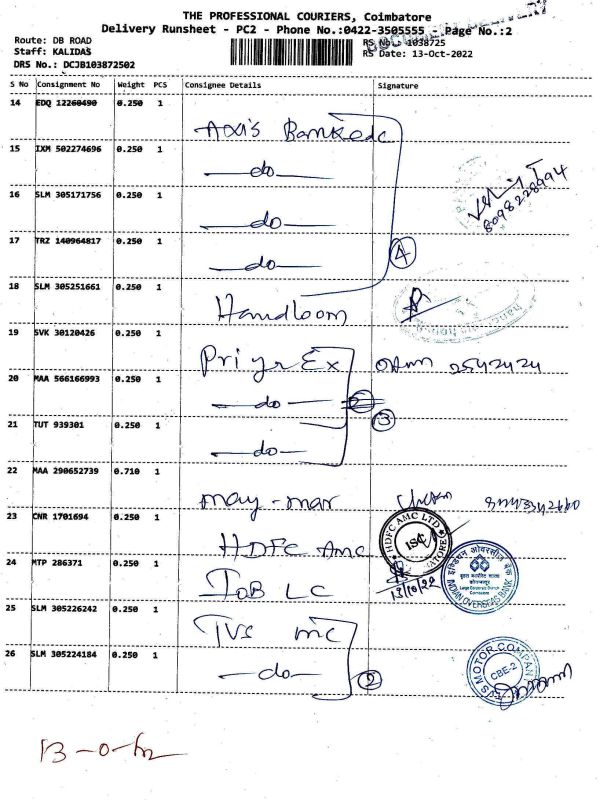 THE PROFESSIONAL COURIERS, Coimbatore
Delivery Runsheet - PC2 - Phone No.:0422-3505555 - Page No.:2
Route: DB ROAD
Staff: KALIDAS
DRS No.: DCJB103872502
RS No.: 1038725
RS Date: 13-Oct-2022
S No Consignment No Weight PCS Consignee Details Signature
14 EDQ 12260490 0.250 1 Axis Bank edc
15 IXM 502274696 0.250 1 —do—
8098228994
16 SLM 305171756 0.250 1 —do—
17 TRZ 140964817 0.250 1 —do— 4
18 SLM 305251661 0.250 1 Handloom
19 SVK 30120426 0.250 1 Priya Ex 2542424
20 MAA 566166993 0.250 1 —do—
21 TUT 939301 0.250 1 —do— 3
22 MAA 290652739 0.710 1 may-mar
23 CNR 1701694 0.250 1 HDFC Amc
HDFC AMC LTD
ISC
24 MTP 286371 0.250 1 IoB LC
13/10/22
इण्डियन ओवरसीज़ बैंक
Large Corporate Branch
Coimbatore
INDIAN OVERSEAS BANK
25 SLM 305226242 0.250 1 TVS mc
26 SLM 305224184 0.250 1 —do— 2
TVS MOTOR COMPANY
CBE-2